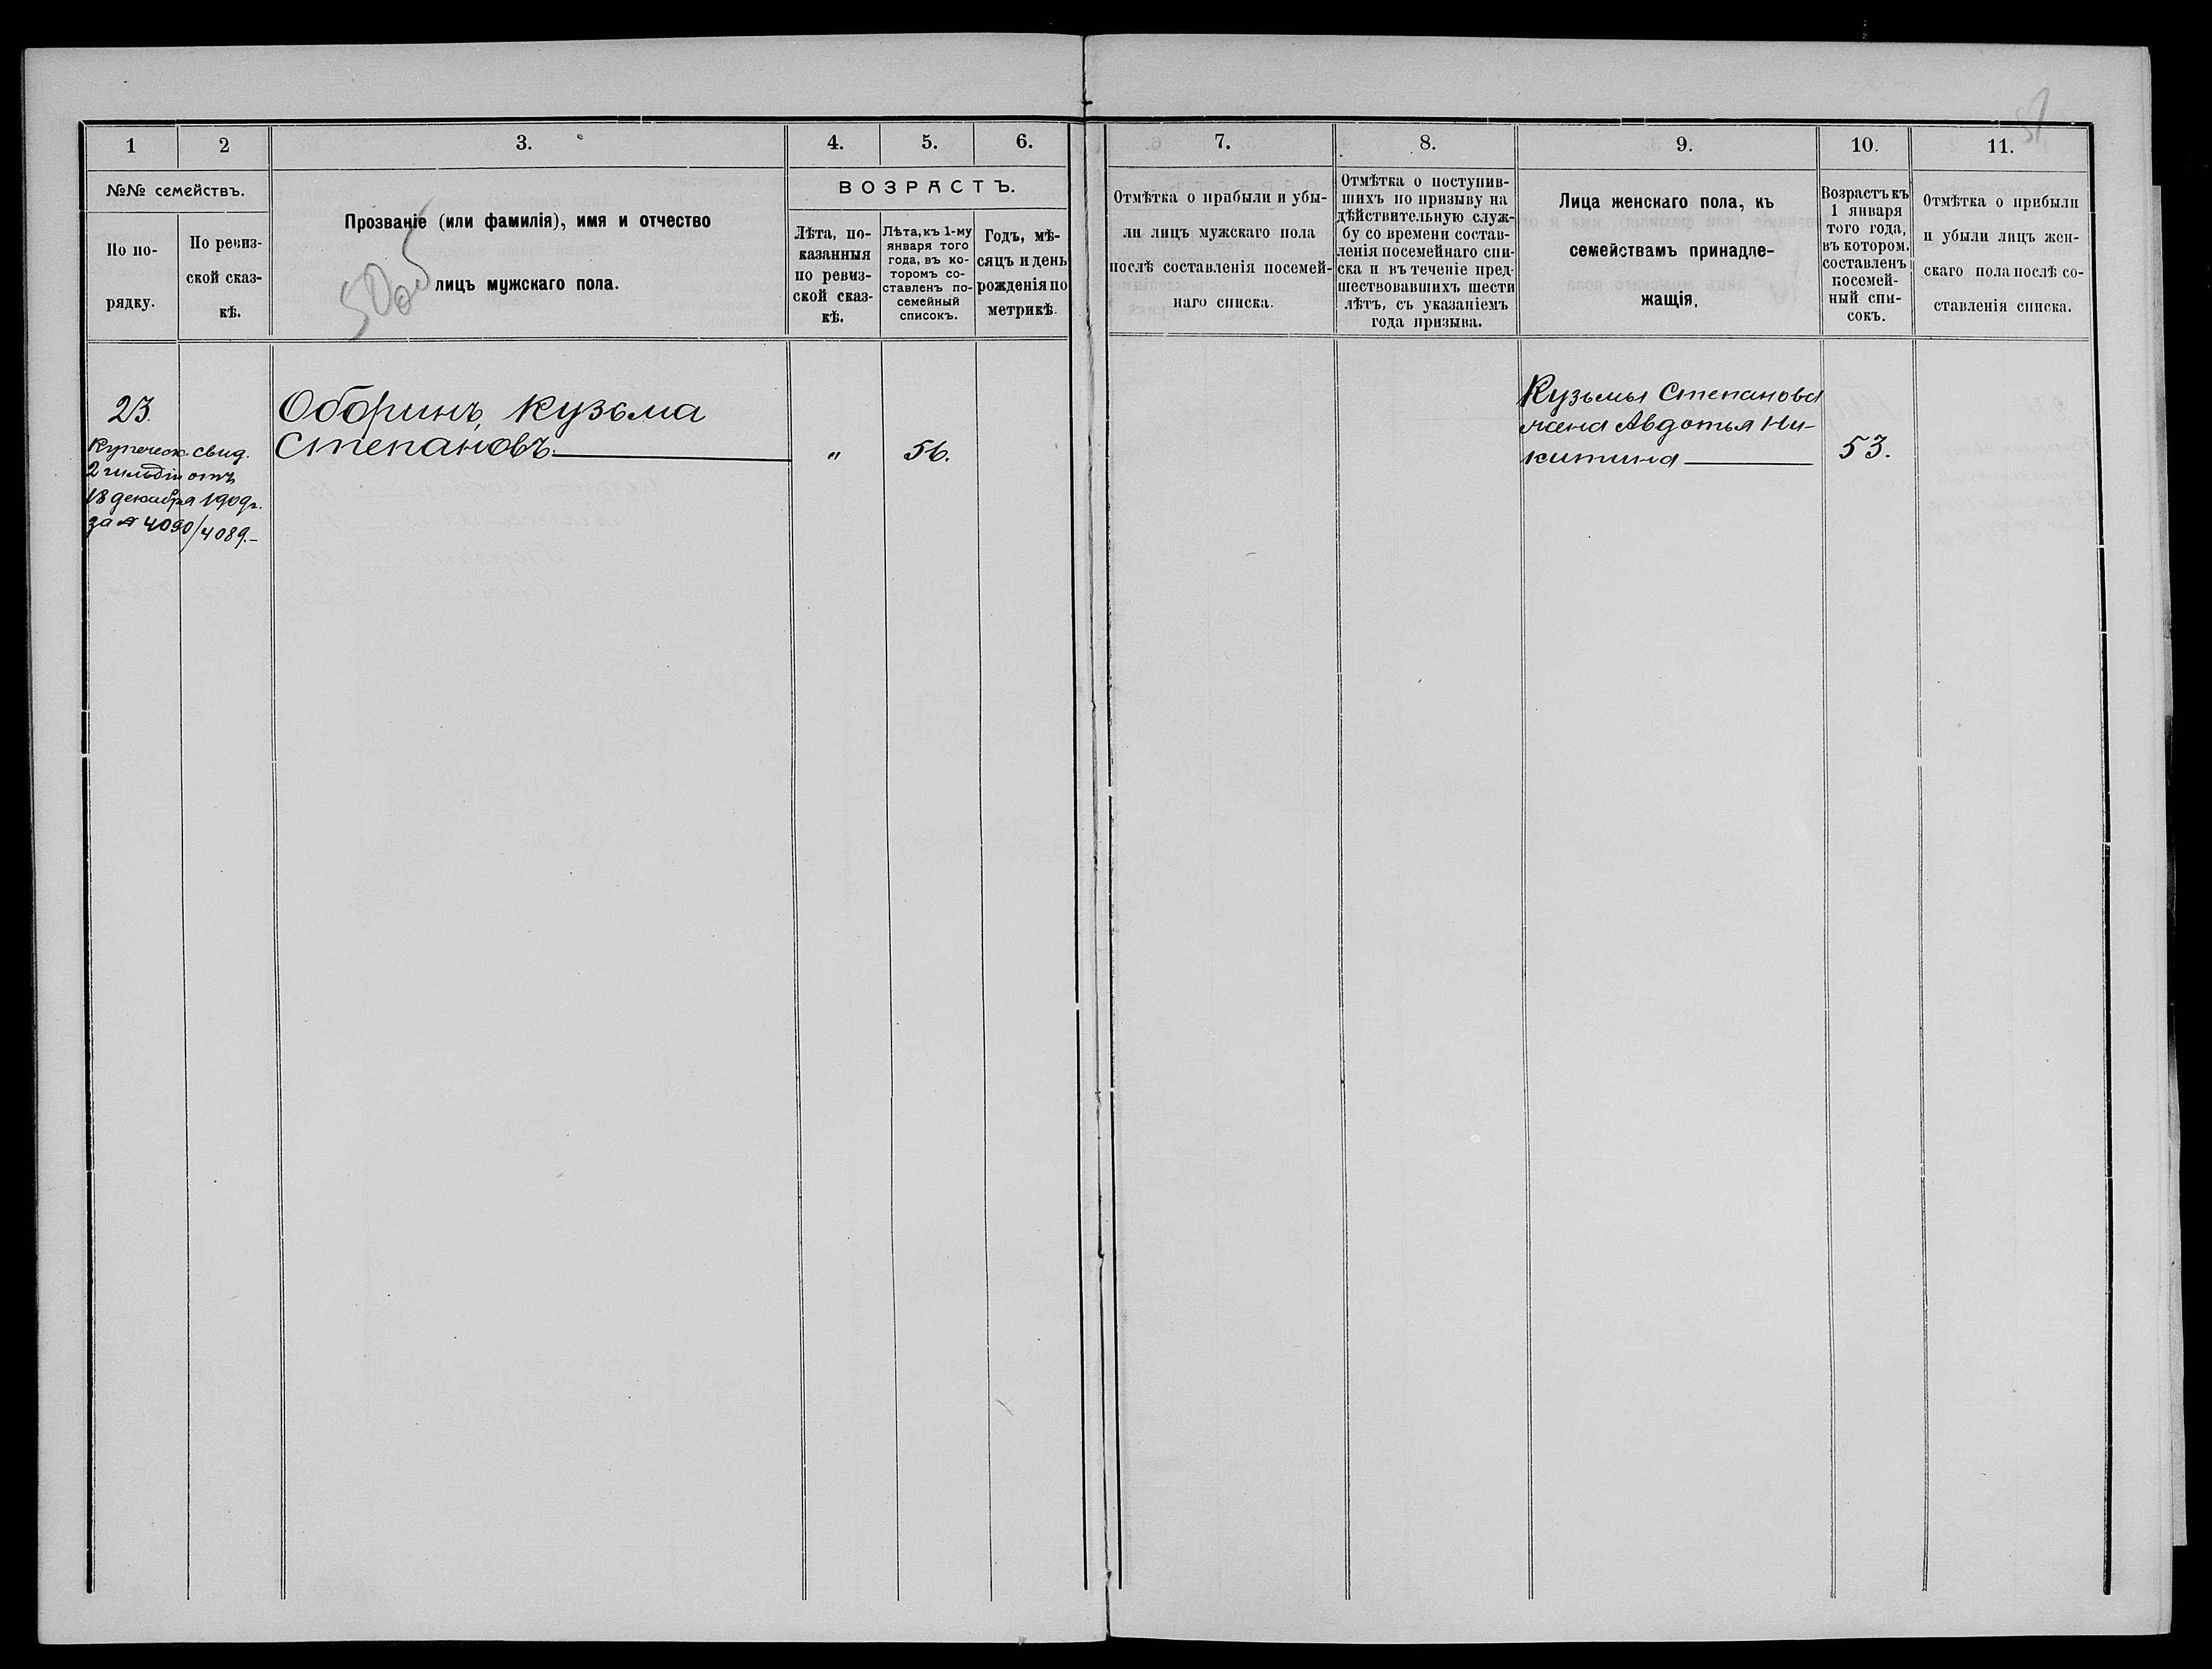 1
2
3.
4.
5.
6.
№№ семействъ.
По по-
рядку.
По ревиз-
ской сказ-
кѣ.
Прозваніе (или фамилія), имя и отчество
лицъ мужскаго пола.
ВОЗРАСТЪ.
Лѣта, по-
казанныя
по ревиз-
ской сказ-
кѣ.
Лѣта, къ 1-му
января того
года, въ ко-
торомъ со-
ставленъ по-
семейный
списокъ.
Годъ, мѣ-
сяцъ и день
рожденія по
метрикѣ.
23.
Купеческ. свид.
2 гильдіи отъ
18 декабря 1909 г.
за № 4090/4089.-
Оборинъ, Кузьма
Степановъ.
"
56.
7.
8.
9.
10.
11.
Отмѣтка о прибыли и убы-
ли лицъ мужскаго пола
послѣ составленія посемей-
наго списка.
Отмѣтка о поступив-
шихъ по призыву на
дѣйствительную служ-
бу со времени состав-
ленія посемейнаго спи-
ска и въ теченіе пред-
шествовавшихъ шести
лѣтъ, съ указаніемъ
года призыва.
Лица женскаго пола, къ
семействамъ принадле-
жащія.
Возрастъ къ
1 января
того года,
въ котором.
составленъ
посемей-
ный спи-
сокъ.
Отмѣтка о прибыли
и убыли лицъ жен-
скаго пола послѣ со-
ставленія списка.
Кузьмы Степанова
жена Авдотья Ни-
китина
53.